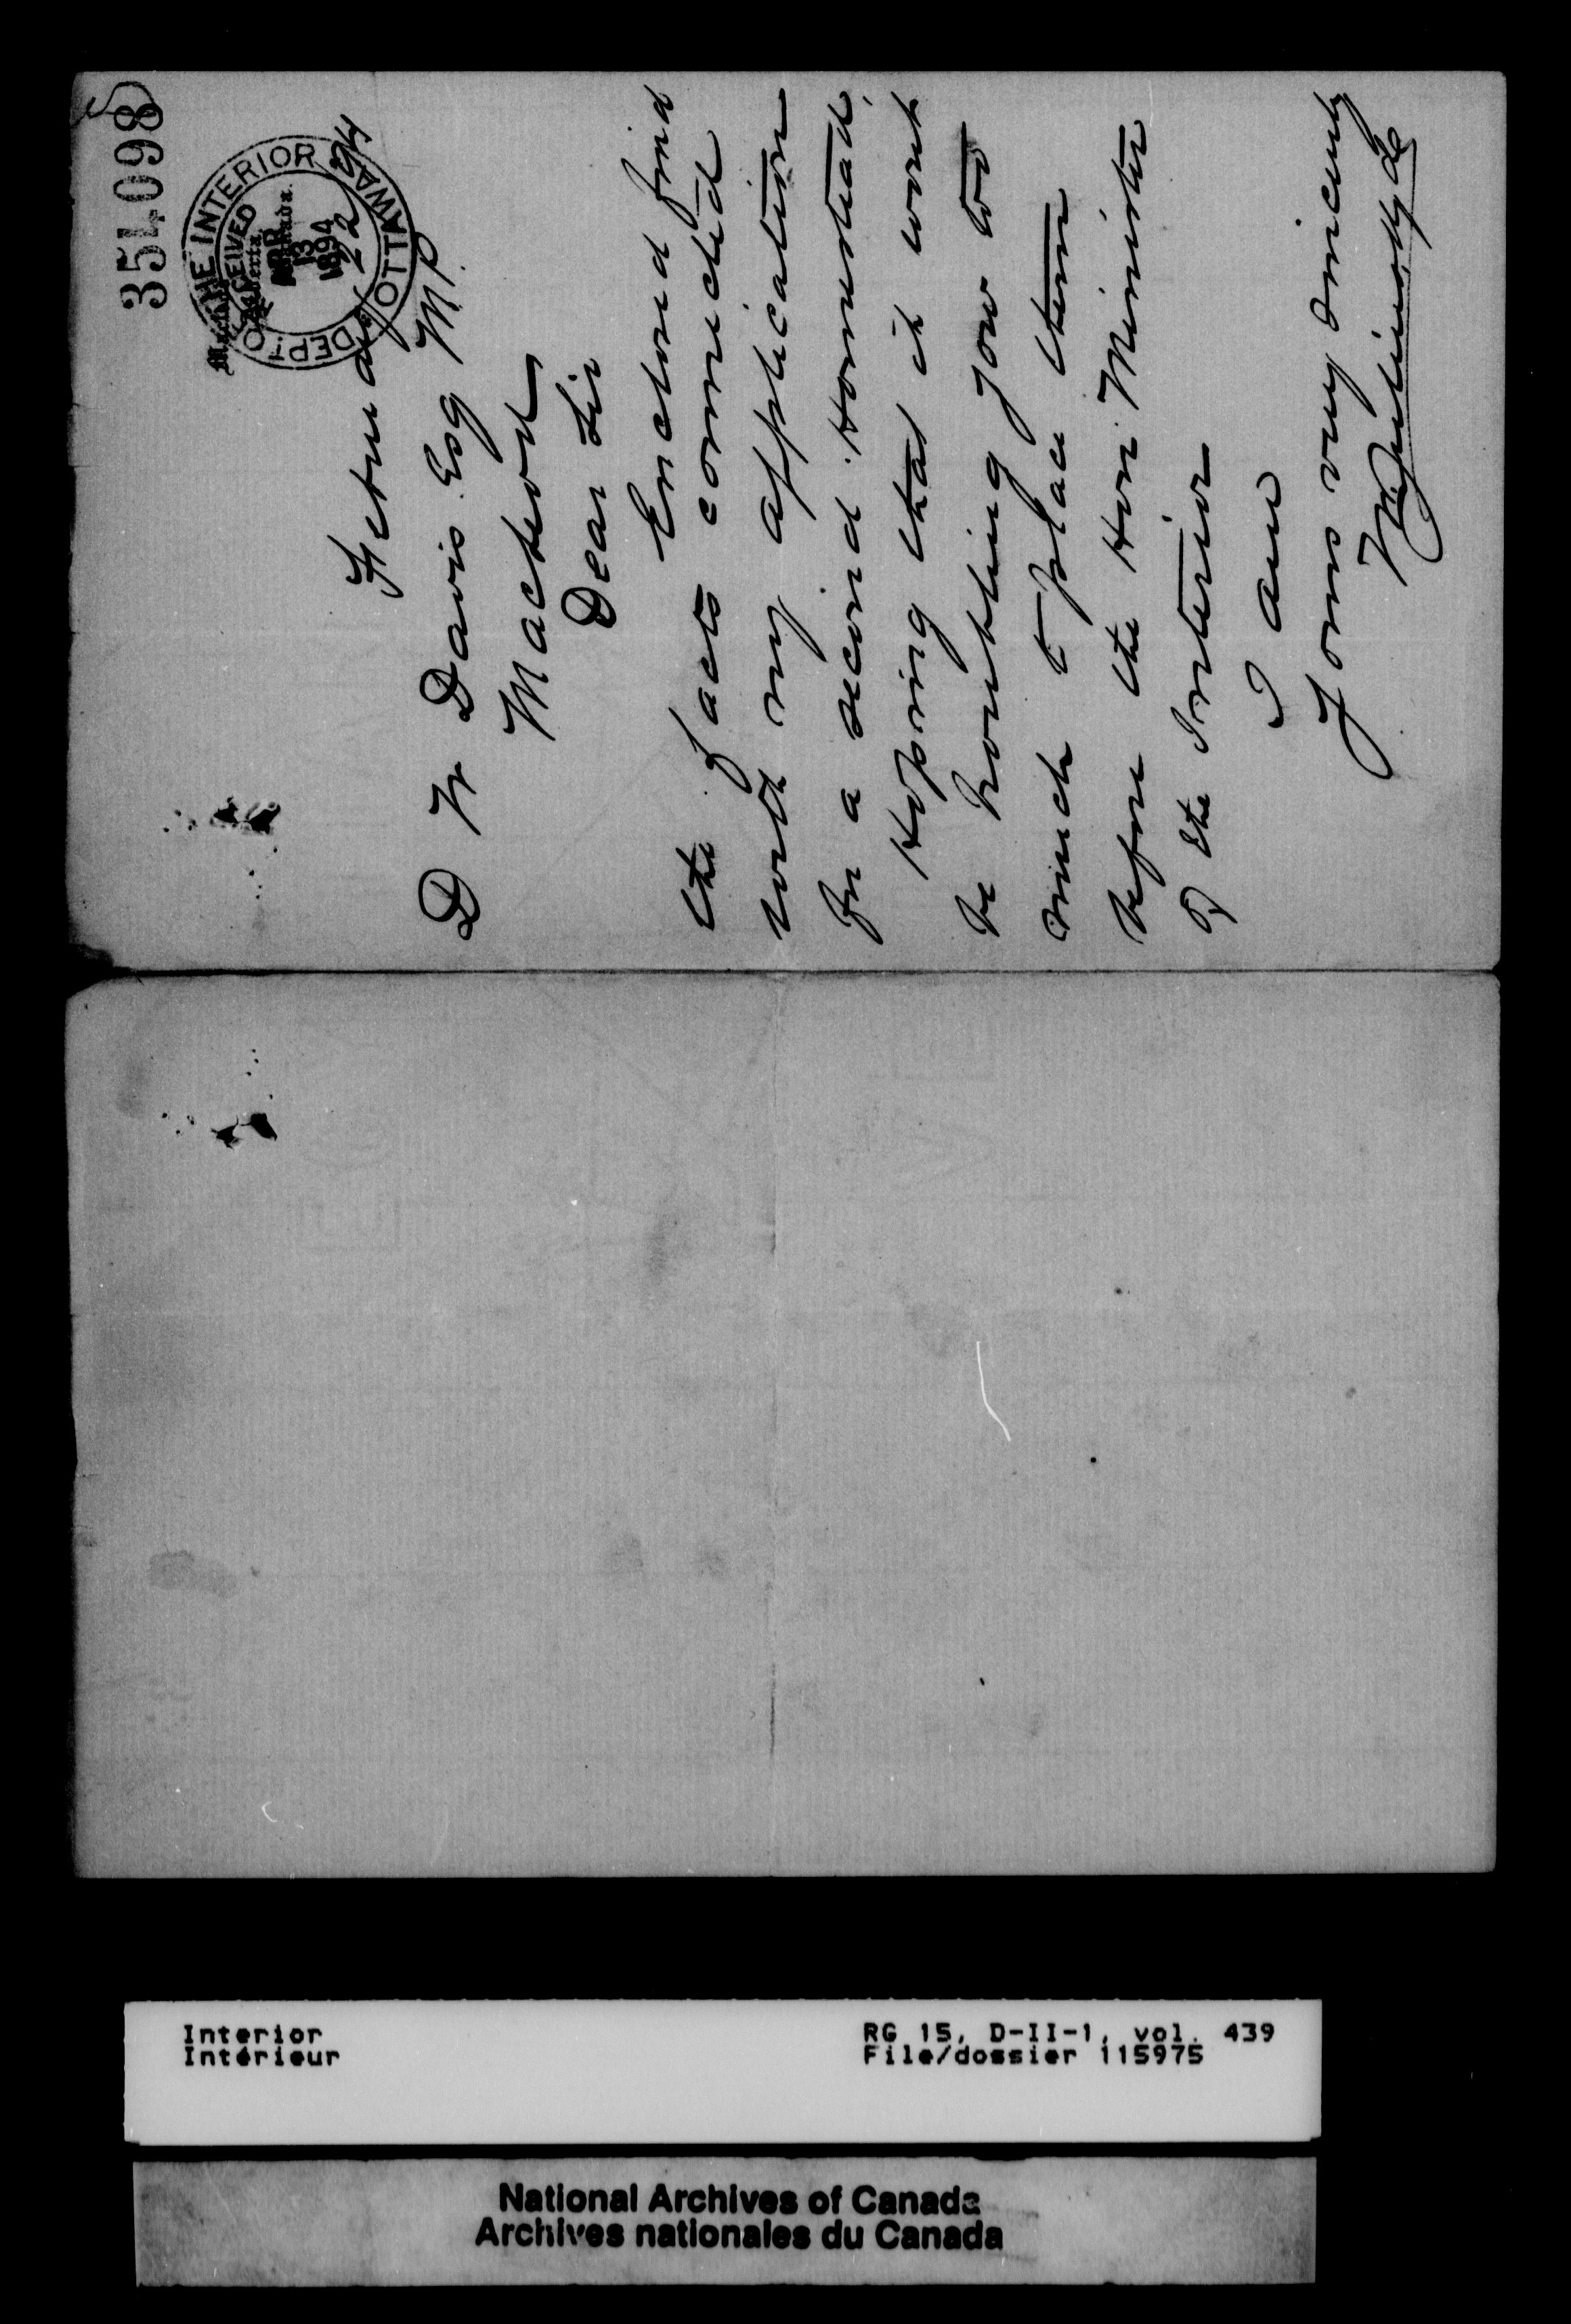 351098
DEPT OF THE INTERIOR OTTAWA
RECEIVED
APR
13
1894
Macleod
Alberta.
Canada.
Februay 22 94
D W Davis Esq M.P.
Macleod
Dear Sir
Enclosed find
the facts connected
with my application
for a second Homestead.
Hoping that it wont
be troubling you to
much to place them
before the Hon. Minister
of the Interior
I am
Yours very sincerely
Interior
Intérieur
RG 15, D-II-1, vol. 439
File/dossier 115975
National Archives of Canada
Archives nationales du Canada